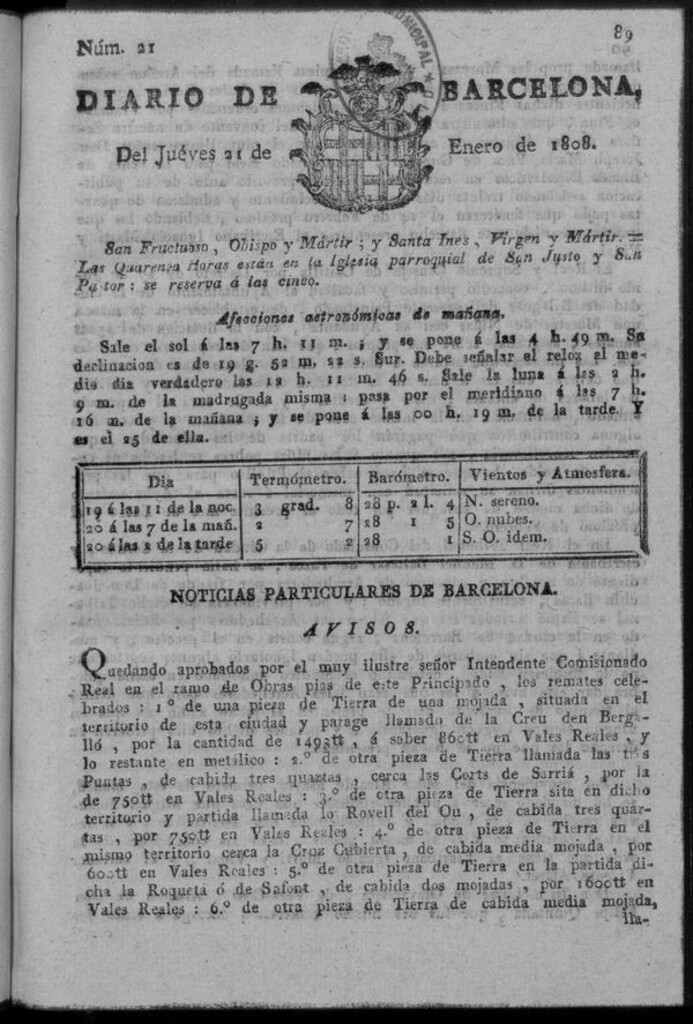 Núm. 21
89
DIARIO DE BARCELONA,
Del Juéves 21 de Enero de 1808.
San Fructuoso, Obispo y Mártir; y Santa Ines, Vírgen y Mártir. =
Las Quarenta Horas están en la Iglesia parroquial de San Justo y San
Pastor: se reserva á las cinco.
Afecciones astronómicas de mañana.
Sale el sol á las 7 h. 11 m.; y se pone á las 4 h. 49 m. Su
declinacion es de 19 g. 52 m. 22 s. Sur. Debe señalar el relox al me-
dio dia verdadero las 12 h. 11 m. 46 s. Sale la luna á las 2 h.
9 m. de la madrugada misma: pasa por el meridiano á las 7 h.
16 m. de la mañana; y se pone á las 00 h. 19 m. de la tarde. Y
es el 25 de ella.
Dia Termómetro. Barómetro. Vientos y Atmosfera.
19 á las 11 de la noc. 3 grad. 8 28 p. 2 l. 4 N. sereno.
20 á las 7 de la mañ. 2 7 28 1 5 O. nubes.
20 á las 2 de la tarde 5 2 28 1 S. O. idem.
NOTICIAS PARTICULARES DE BARCELONA.
AVISOS.
Quedando aprobados por el muy ilustre señor Intendente Comisionado
Real en el ramo de Obras pias de este Principado, los remates cele-
brados: 1.º de una pieza de Tierra de una mojada, situada en el
territorio de esta ciudad y parage llamado de la Creu den Berga-
lló, por la cantidad de 1495tt, á saber 860tt en Vales Reales, y
lo restante en metálico: 2.º de otra pieza de Tierra llamada las tres
Puntas, de cabida tres quartas, cerca las Corts de Sarriá, por la
de 750tt en Vales Reales: 3.º de otra pieza de Tierra sita en dicho
territorio y partida llamada lo Rovell del Ou, de cabida tres quar-
tas, por 750tt en Vales Reales: 4.º de otra pieza de Tierra en el
mismo territorio cerca la Cruz Cubierta, de cabida media mojada, por
600tt en Vales Reales: 5.º de otra pieza de Tierra en la partida di-
cha la Roqueta ó de Safont, de cabida dos mojadas, por 1600tt en
Vales Reales: 6.º de otra pieza de Tierra de cabida media mojada,
lla-